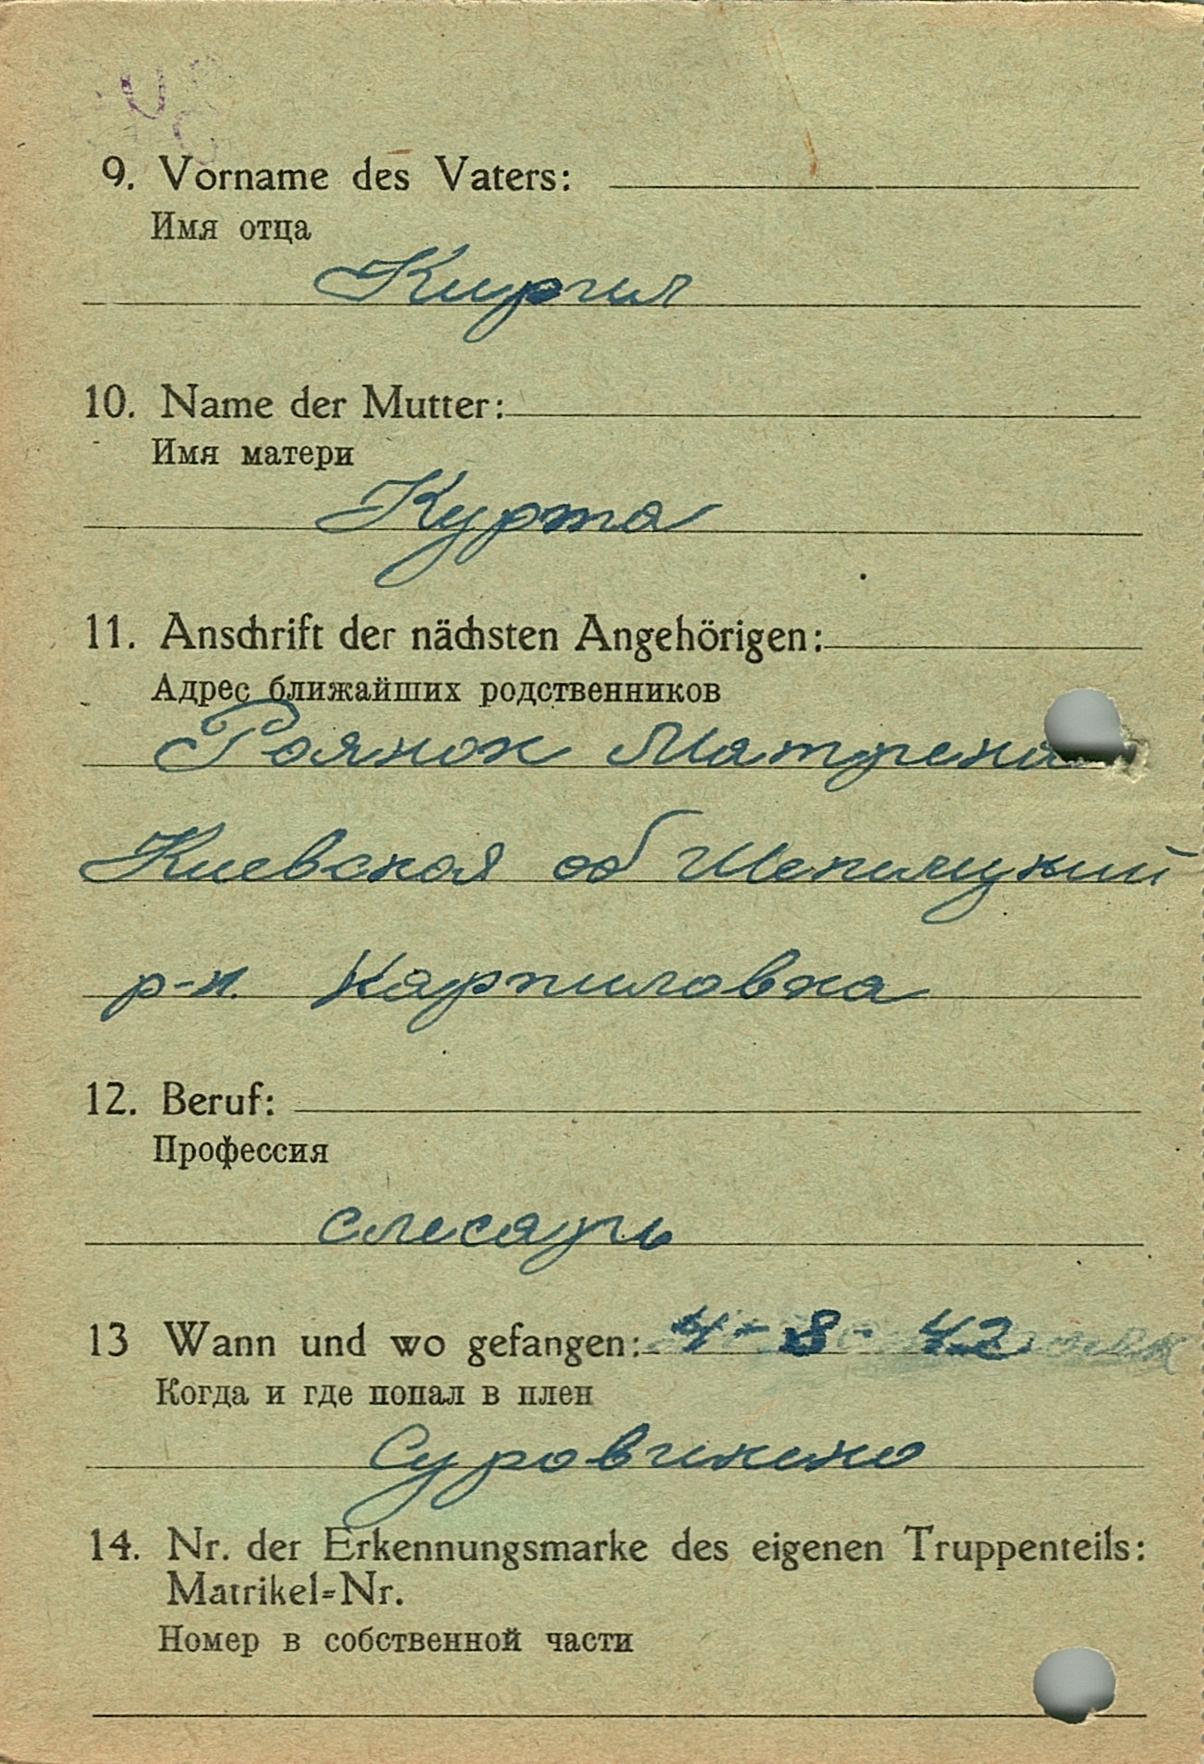 9. Vorname des Vaters:
Имя отца
Кирил
10. Name der Mutter:
Имя матери
Курта
11. Anschrift der nächsten Angehörigen:
Адрес ближайших родственников
Роянок Матрена
Киевская об
р-н. Карпиловка
12. Beruf:
Профессия
слесарь
13 Wann und wo gefangen: 4-8-42
Когда и где попал в плен
Суровикино
14. Nr. der Erkennungsmarke des eigenen Truppenteils:
Matrikel=Nr.
Номер в собственной части